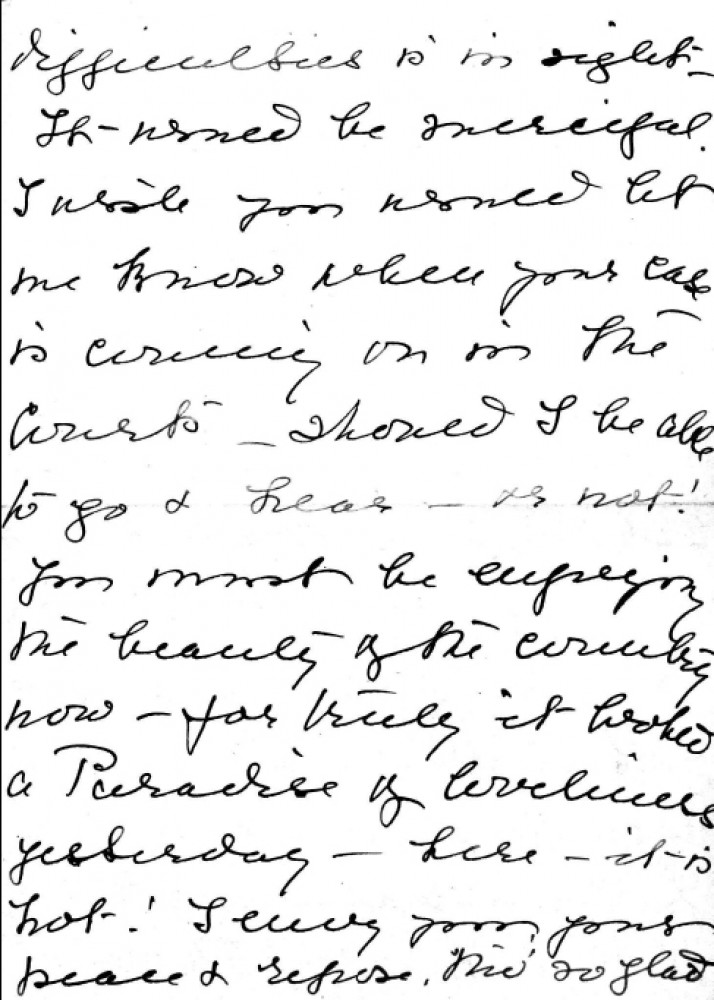 difficulties is in sight –
It would be merciful.
I wish you would let
me know when your case
is coming on in the
Courts – should I be able
to go & hear – or not!
You must be enjoying
the beauty of the country
now – for truly it looked
a Paradise of loveliness
yesterday – here – it is
hot! I envy you, your
peace & repose. tho' so glad